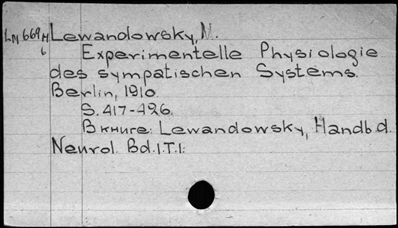 LM 669 M
6
Lewandowsky, M.
Experimentelle Physiologie
des sympatischen Systems.
Berlin, 1910.
S. 417-426.
В книге: Lewandowsky, Handb. d.
Neurol. Bd. I. T. I.